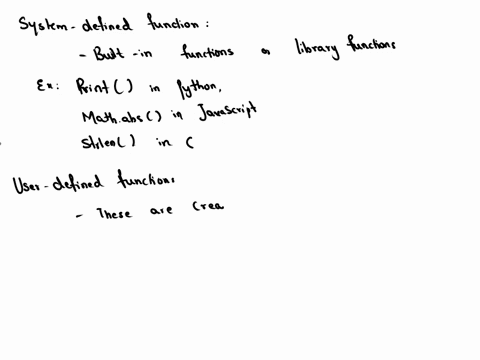 System-defined function:
- Built-in functions or library functions
Ex: Print() in Python,
Math.abs() in JavaScript
Strlen() in C
User-defined functions
- These are Crea